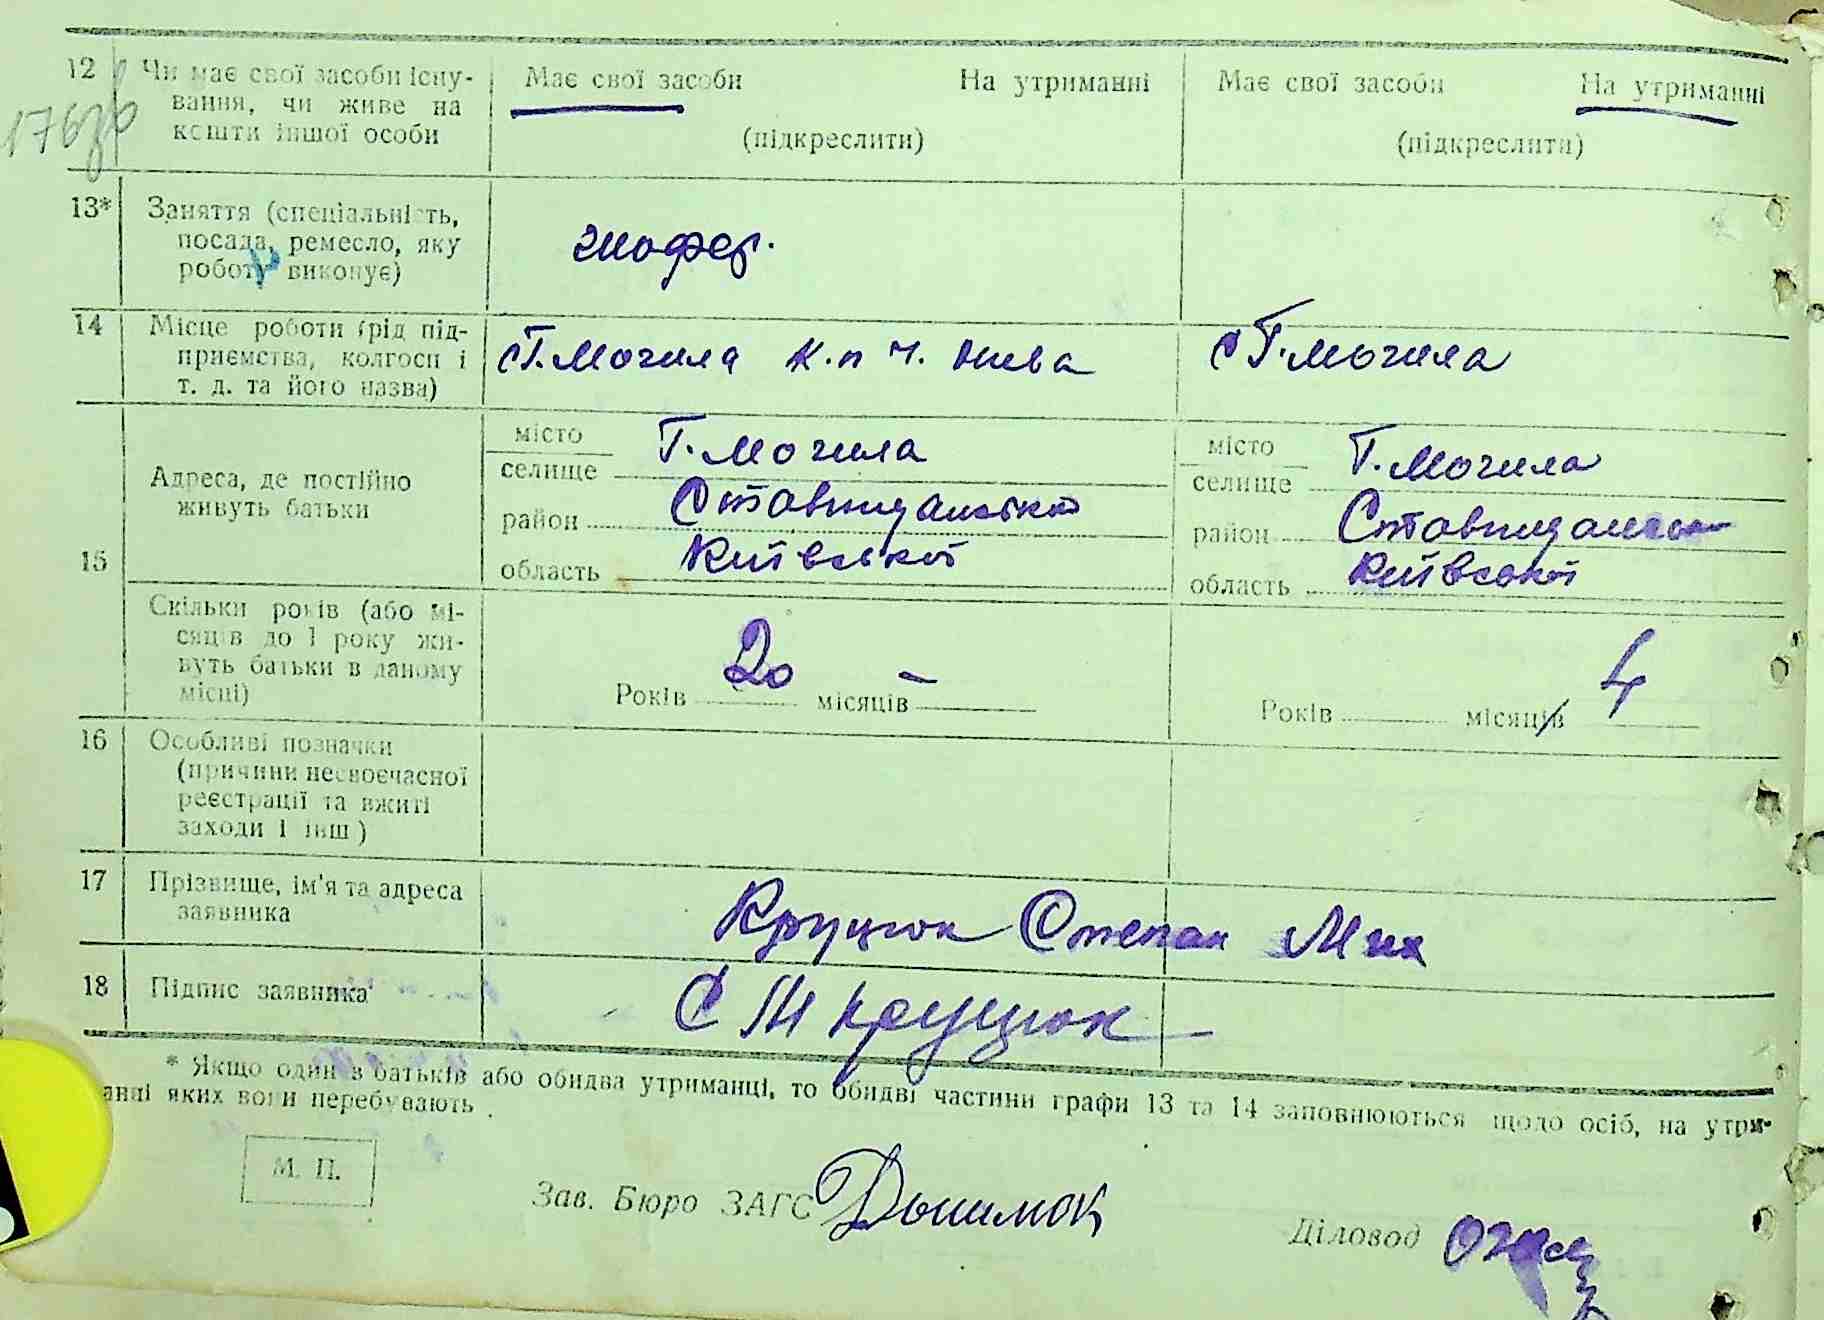 12 Чи має свої засоби існу-
вання, чи живе на
кошти іншої особи
Має свої засоби На утриманні
(підкреслити)
Має свої засоби На утриманні
(підкреслити)
176
13* Заняття (спеціальність,
посада, ремесло, яку
роботу виконує)
шофер.
14 Місце роботи (рід під-
приємства, колгосп і
т. д. та його назва)
с Г. Могила к.п Ч. Нива
с Г. Могила
15 Адреса, де постійно
живуть батьки
місто
селище Г. Могила
район Ставищансько
область Київської
місто
селище Г. Могила
район Ставищансько
область Київської
Скільки років (або мі-
сяців до 1 року жи-
вуть батьки в даному
місці)
Років 20 місяців –
Років місяців 4
16 Особливі позначки
(причини несвоєчасної
реєстрації та вжиті
заходи і інш)
17 Прізвище, ім'я та адреса
заявника
Круцюк Степан Мих
18 Підпис заявника
С М Круцюк
* Якщо один з батьків або обидва утриманці, то обидві частини графи 13 та 14 заповнюються щодо осіб, на утри-
анні яких вони перебувають.
М. П.
Зав. Бюро ЗАГС
Діловод